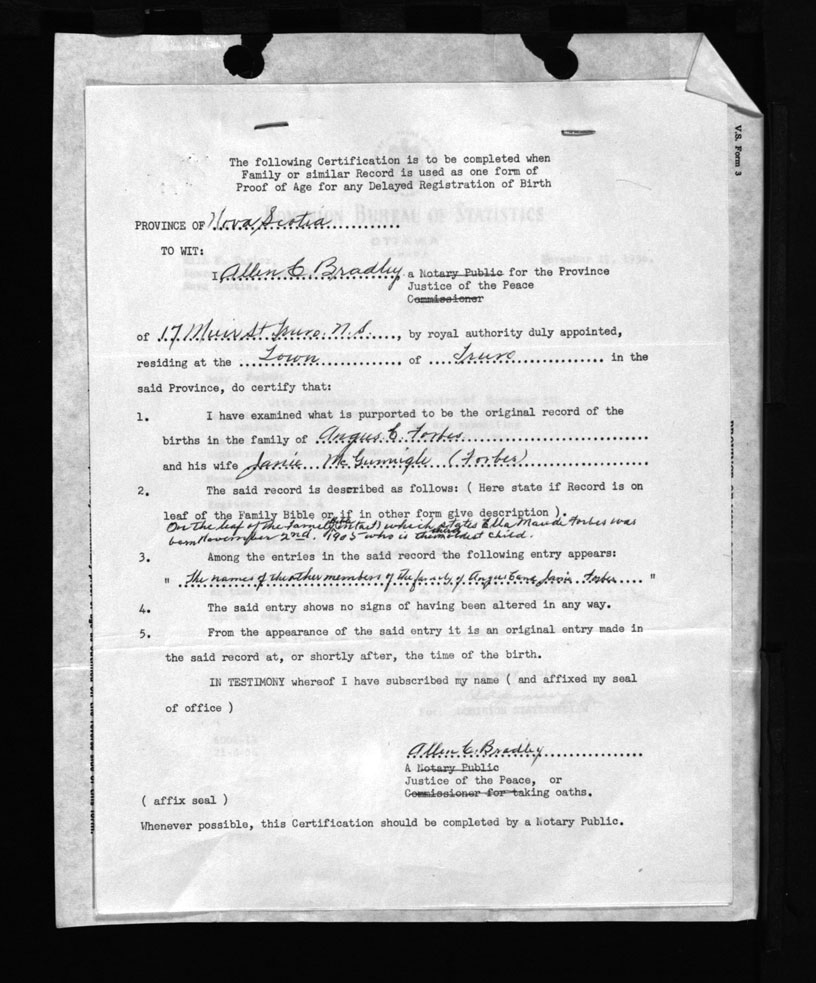 V.S. Form 3
The following Certification is to be completed when
Family or similar Record is used as one form of
Proof of Age for any Delayed Registration of Birth
DOMINION BUREAU OF STATISTICS
OTTAWA
PROVINCE OF Nova Scotia
TO WIT:
I Allen C. Bradley a Notary Public for the Province
Justice of the Peace
Commissioner
of 17 Muir St Truro. N.S. , by royal authority duly appointed,
residing at the Town of Truro in the
said Province, do certify that:
1. I have examined what is purported to be the original record of the
births in the family of Angus C. Forbes
and his wife Janie McGunnigle (Forbes)
2. The said record is described as follows: ( Here state if Record is on
leaf of the Family Bible or if in other form give description ).
On the leaf of the Family which states Ella Maude Forbes was
born November 2nd. 1905 who is the oldest child.
3. Among the entries in the said record the following entry appears:
" The names of the other members of the family of Angus and Janie Forbes "
4. The said entry shows no signs of having been altered in any way.
5. From the appearance of the said entry it is an original entry made in
the said record at, or shortly after, the time of the birth.
IN TESTIMONY whereof I have subscribed my name ( and affixed my seal
of office )
Allen C. Bradley
A Notary Public
Justice of the Peace, or
Commissioner for taking oaths.
( affix seal )
Whenever possible, this Certification should be completed by a Notary Public.